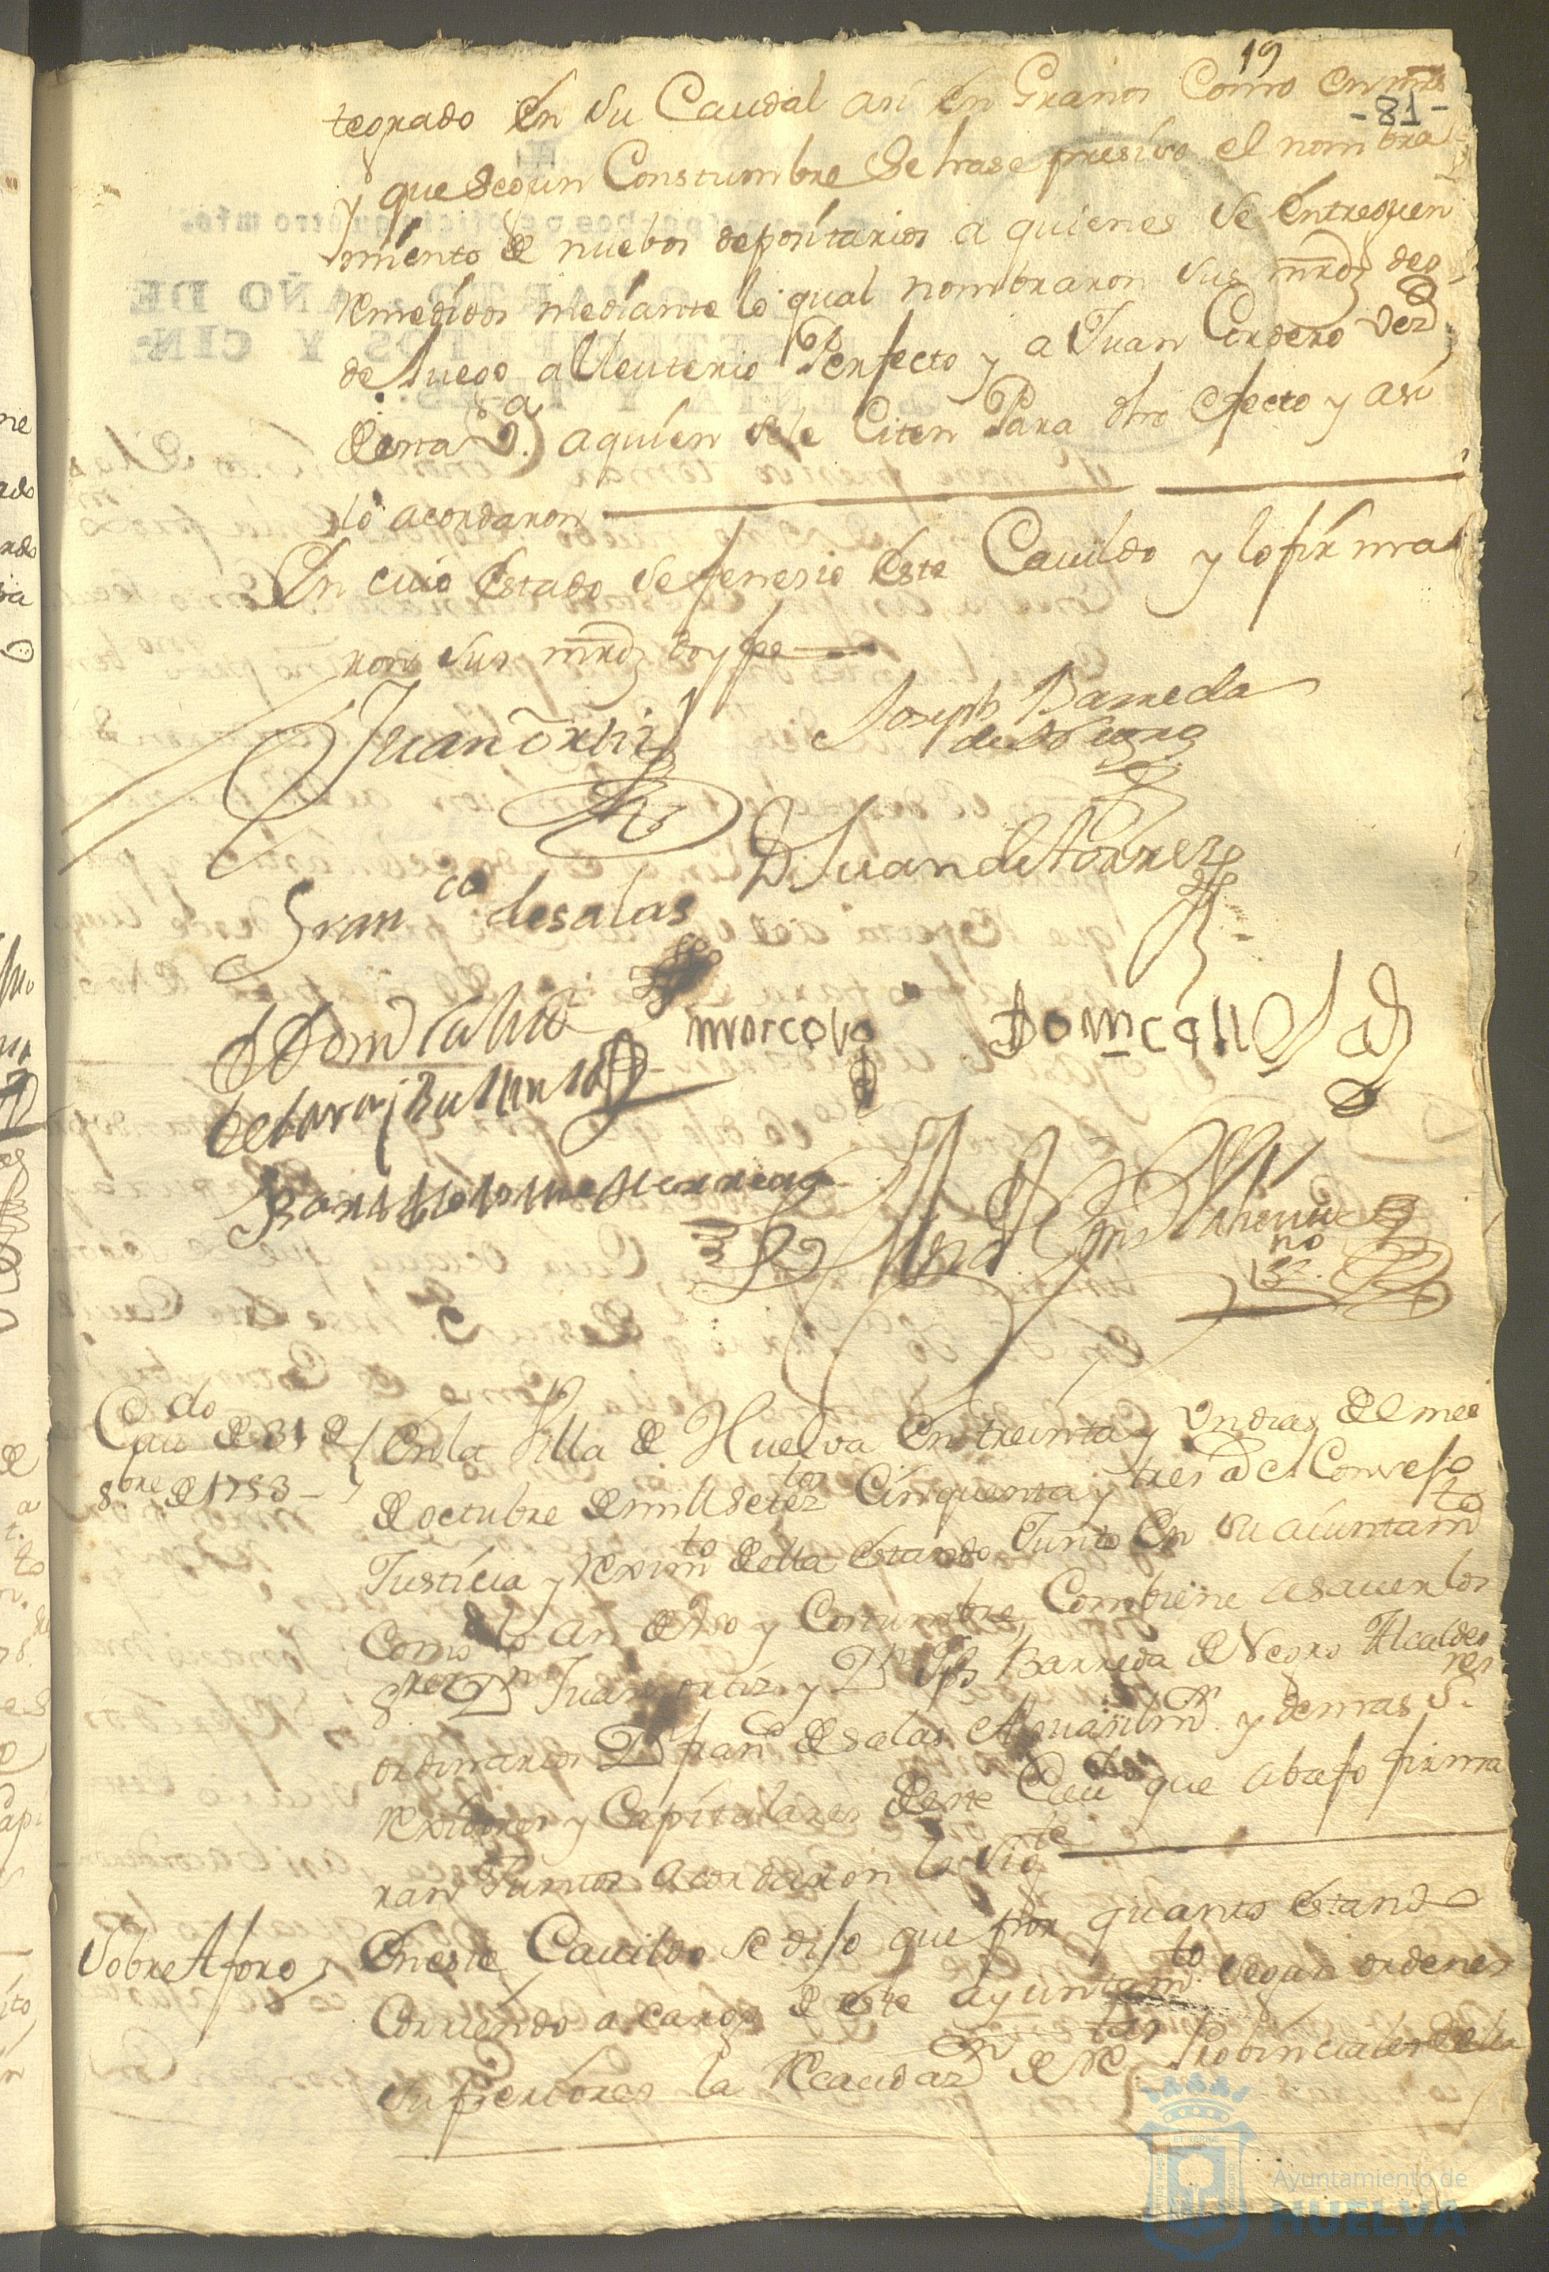 19
-81-
tegrado en su Caudal asi en Granos Como en mrs
y que segun Constumbre se hase presiso el nombra
miento de nuebos depositarios a quienes se entreguen
Remedidos mediante lo qual nombraron sus mrdz des
de luego a Eleuterio Perfecto y a Juan Cordero vezos
de esta Va. a quien se le Citen Para dho efecto y asi
lo acordaron
En cuio estado se fenesio este Cauildo y lo firma
ron sus mrdz doy fee
Juan ortiz
Joseph Barreda
de Negro
Dn Juan de torrez
Franco de salas
Marcos
Bartholome Herrera
Caudo de 31 de
8bre de 1753
En la Villa de Huelva en treinta y un dias del mes
de octubre de mill setezos Cinquenta y tres a el Consejo
Justicia y Reximto de ella estando Junto en su aiuntamto
Como lo an de uso y Costumbre, Combiene a sauer los
Sres Dn Juan ortiz y Dn Jph Barreda de Negro Alcaldes
ordinarios Dn Franco de salas Alguasil mr y demas Sres
Rexidores y Capitulares de este Ceudo que abajo firma
ran Juntos acordaron lo sigte
Sobre Aforo
En este Cauildo se dijo que por quanto estando
Corriendo a cargo de este ayuntamto segun ordenes
superiores la Recaudazn de Rtas Probinciales de ella
Ayuntamiento de
HUELVA